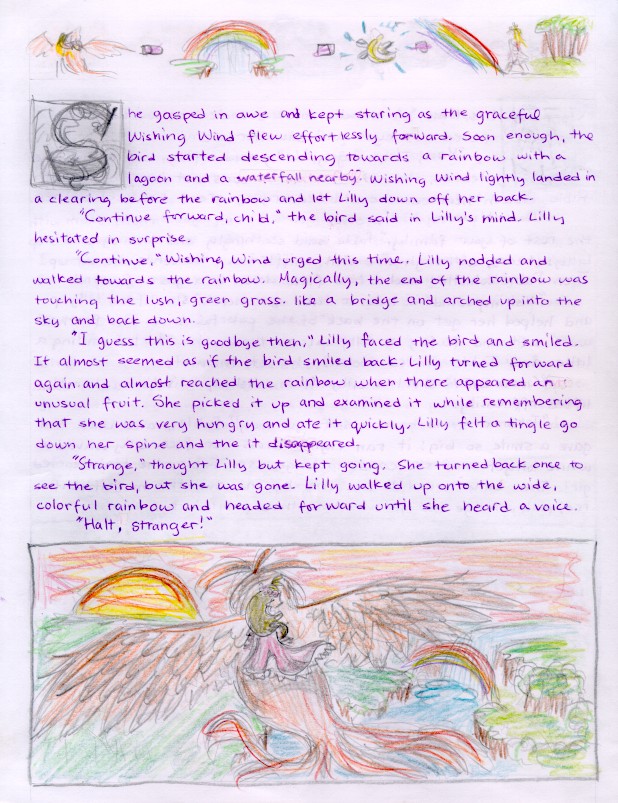 She gasped in awe and kept staring as the graceful
Wishing Wind flew effortlessly forward. Soon enough, the
bird started descending towards a rainbow with a
lagoon and a waterfall nearby. Wishing Wind lightly landed in
a clearing before the rainbow and let Lilly down off her back.
"Continue forward, child," the bird said in Lilly's mind. Lilly
hesitated in surprise.
"Continue," Wishing Wind urged this time. Lilly nodded and
walked towards the rainbow. Magically, the end of the rainbow was
touching the lush, green grass. like a bridge and arched up into the
sky and back down.
"I guess this is goodbye then," Lilly faced the bird and smiled.
It almost seemed as if the bird smiled back. Lilly turned forward
again and almost reached the rainbow when there appeared an
unusual fruit. She picked it up and examined it while remembering
that she was very hungry and ate it quickly. Lilly felt a tingle go
down her spine and the it disappeared.
"Strange," thought Lilly but kept going. She turned back once to
see the bird, but she was gone. Lilly walked up onto the wide,
colorful rainbow and headed forward until she heard a voice.
"Halt, stranger!"